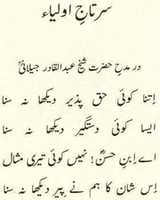 سرتاجِ اولیاء
در مدحِ حضرت شیخ عبدالقادر جیلانیؒ
اِتنا کوئی حق پذیر دیکھا نہ سنا
ایسا کوئی دستگیر دیکھا نہ سنا
اے اِبنِ حسنؑ! نہیں کوئی تیری مثال
اِس شان کا ہم نے پیر دیکھا نہ سنا